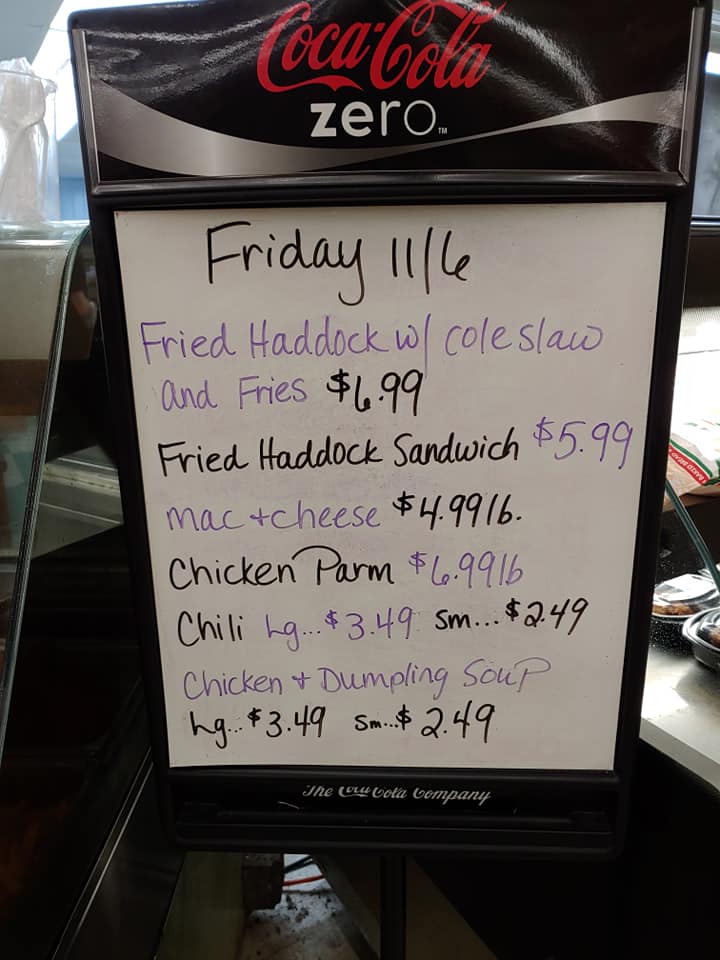 Coca-Cola
zero™
Friday 11/6
Fried Haddock w/ coleslaw
and Fries $6.99
Fried Haddock Sandwich $5.99
mac + cheese $4.99 lb.
Chicken Parm $6.99 lb
Chili Lg...$3.49 sm...$2.49
Chicken + Dumpling Soup
Lg...$3.49 sm...$2.49
The Coca-Cola Company